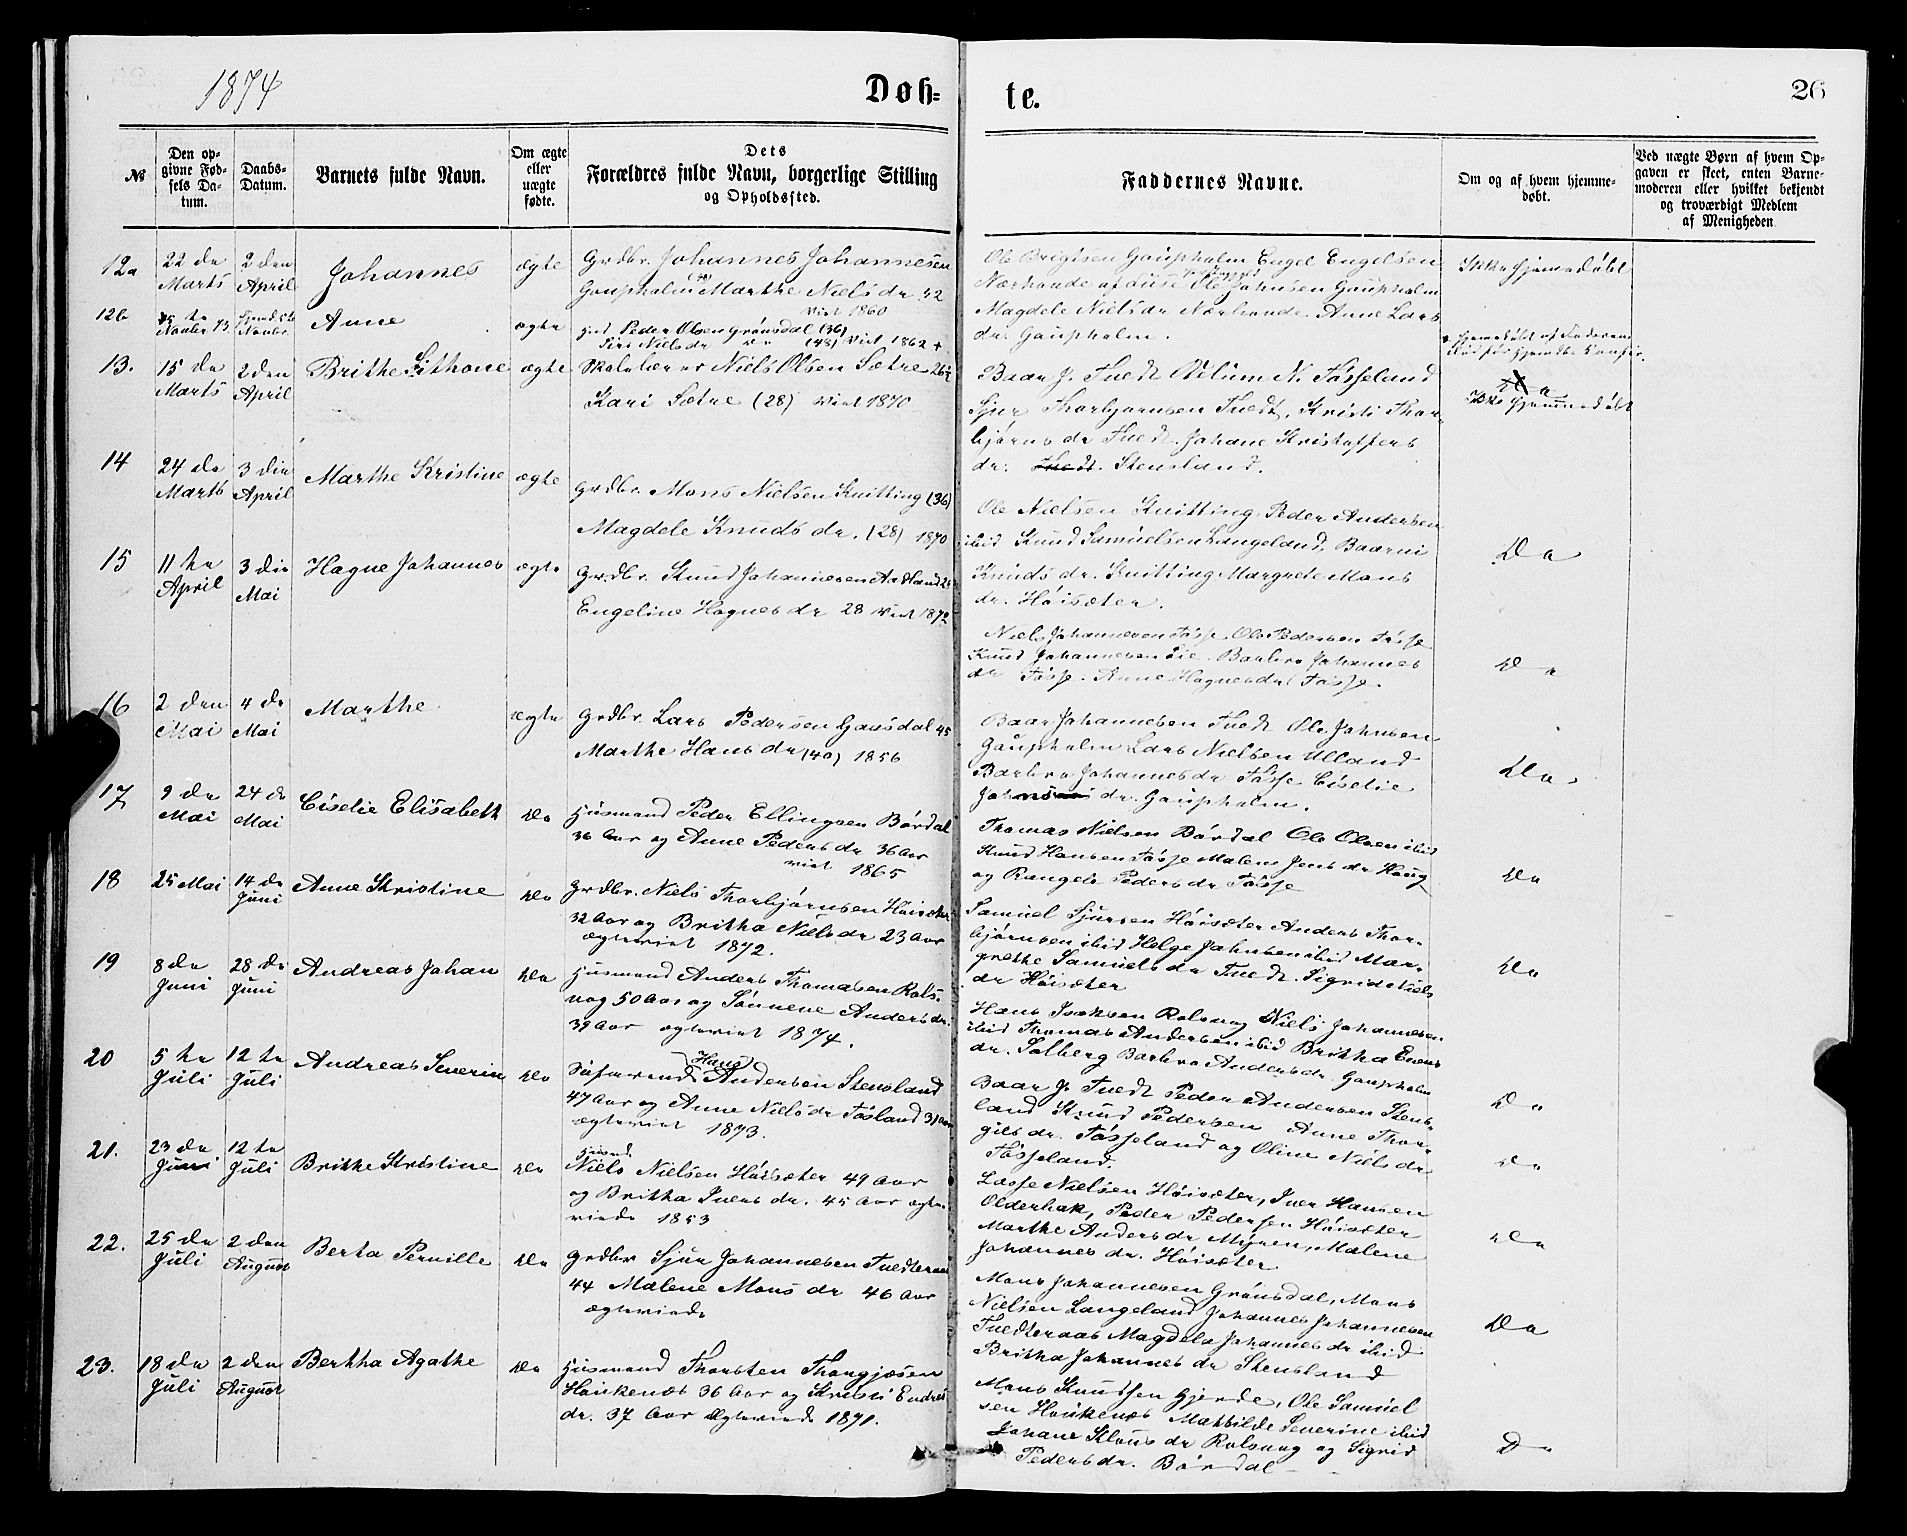 1874
Døb=
te.
26
№
Den op-
givne Fød-
sels Da-
tum.
Daabs-
Datum.
Barnets fulde Navn.
Om ægte
eller
uægte
fødte.
Dets
Forældres fulde Navn, borgerlige Stilling
og Opholdssted.
Faddernes Navne.
Om og af hvem hjemme-
døbt.
Ved uægte Børn af hvem Op-
gaven er skeet, enten Barne-
moderen eller hvilket bekjendt
og troværdigt Medlem
af Menigheden
12a
22 de
Marts
2 den
April
Johannes
ægte
Grdbr. Johannes Johannesen
Gaupholm Marthe Nielsdr 32
Viet 1860
Ole Brigtsen Gaupholm Engel Engelsen
Nærhovde Ole Johnsen Gaupholm
Magdele Nielsdr Nærhovde Anne Lars
dr. Gaupholm.
Ikke hjemmedøbt
12b
Novbr 73
Anne
ægte
Peder Olsen Grønsdal (36)
Siri Nielsdr do (48) Viet 1862
Hjemmedøbt af Faderen
13.
15 de
Marts
2 den
April
Brithe Sithone
ægte
Skolelærer Niels Olsen Sætre 26½
Kari Sætre (28) Viet 1870
Baar J. Tuedt N. Tøsseland
Sjur Thorbjørnsen Tuedt, Kristi Thor-
bjørns dr Tuedt. Johane Kristoffers
dr. Stensland.
Ikke hjemmedøbt
14
24 de
Marts
3 die
April
Marthe Kristine
ægte
Grdbr. Mons Nielsen Knitting (36)
Magdele Knuds dr. (28) 1870
Ole Nielsen Knitting Peder Andersen
ibid Knud Samuelsen Langeland, Baarni
Knuds dr. Knitting Margrete Mons
dr. Høisæter.
Do
15
11 te
April
3 die
Mai
Hagne Johannes
ægte
Grdbr. Knud Johannesen Aadland 26
Engeline Hagnes dr 28 Viet 1872
Niels Johannesen Tøsse Ole Pedersen Tøsse
Knud Johannesen Lie. Barbro Johannes
dr Tøsse. Anne Hagnesdr Tøsse.
Do
16
2 den
Mai
4 de
Mai
Marthe
ægte
Grdbr. Lars Pedersen Gausdal 45
Marthe Hans dr (40) 1856
Baar Johannesen Tuedt Ole Johnsen
Gaupholm Lars Nielsen Ulland
Barbro Johannesdr Tøsse Ciselie
dr. Gaupholm.
Do
17
9 de
Mai
24 de
Mai
Ciselie Elisabeth
Do
Husmand Peder Ellingsen Børdal
36 Aar og Anne Peders dr 36 Aar
viet 1865
Thomas Nielsen Børdal Ole Olsen ibid
Knud Hansen Tøsse Malene Jens dr Haug
og Rangele Peders dr Tøsse
Do
18
25 Mai
14 de
Juni
Anne Kristine
Do
Grdbr. Niels Thorbjørnsen Høisæter
32 Aar og Britha Nielsdr 23 Aar
ægteviet 1872.
Samuel Sjursen Høisæter Anders Thor-
bjørnsen ibid Helge Johnsen ibid Mar-
grethe Samuels dr Tuedt. Sigrid Niels
dr Høisæter
Do
19
8 de
Juni
28 de
Juni
Andreas Johan
Do
Husmand Anders Thomasen Rols-
vog 50 Aar og Sønneve Anders dr
39 Aar ægteviet 1874.
Hans Isaksen Rolsvog Niels Johannesen
ibid Thomas Andersen ibid Britha Evens
dr. Solberg Barbro Andersdr. Gaupholm
Do
20
5 te
Juli
12 te
Juli
Andreas Severin
Do
Søfarende Hans Andersen Stensland
47 Aar og Anne Niels dr Tøsland 31 Aar
ægteviet 1873.
Baar J. Tuedt Peder Andersen Stens-
land Knud Pedersen Anne Thor-
gils dr. Tøsseland og Oline Niels dr
Tøsseland.
Do
21.
23 de
Juni
12 te
Juli
Brithe Kristine
Do
Husmd.
Niels Nielsen Høisæter 49 Aar
og Britha Ivers dr. 45 Aar ægte-
viede 1853
Lasse Nielsen Høisæter, Iver Hansen
Olderhak, Peder Pedersen Høisæter
Marthe Anders dr Myren, Malene
Johannes dr. Høisæter
Do
22.
25 de
Juli
2 den
August
Berta Pernille
Do
Grdbr Sjur Johannesen Tuedteraas
44 Malene Mons dr 46 Aar
ægteviede
Mons Johannesen Grønsdal, Mons
Nielsen Langeland Johannes Johannesen
Tuedteraas Magdela Johannes dr ibid
Britha Johannes dr Stensland
Do
23.
18 de
Juli
2 den
August
Bertha Agathe
Do
Husmand Thorsten Thorgjøsen
Haukenæs 36 Aar og Kristi Endres
dr. 37 Aar Ægteviede 1871.
Mons Knudsen Gjerde, Ole Samuel
sen Haukenæs Mathilde Severine ibid
Johane Klaus dr Rolsvog og Sigrid
Pedersdr. Børdal
Do